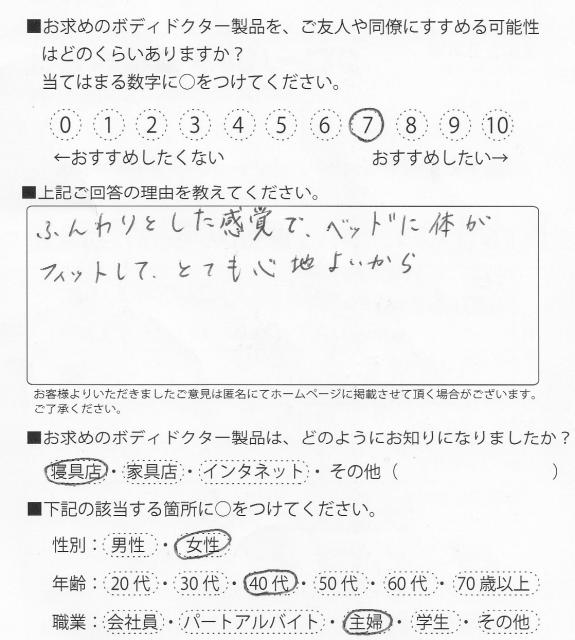 ■お求めのボディドクター製品を、ご友人や同僚にすすめる可能性
はどのくらいありますか？
当てはまる数字に○をつけてください。
0 1 2 3 4 5 6 7 8 9 10
←おすすめしたくない おすすめしたい→
■上記ご回答の理由を教えてください。
ふんわりとした感覚で、ベッドに体が
フィットして、とても心地よいから
お客様よりいただきましたご意見は匿名にてホームページに掲載させて頂く場合がございます。
ご了承ください。
■お求めのボディドクター製品は、どのようにお知りになりましたか？
寝具店・家具店・インターネット・その他（ ）
■下記の該当する箇所に○をつけてください。
性別：男性・女性
年齢：20代・30代・40代・50代・60代・70歳以上
職業：会社員・パートアルバイト・主婦・学生・その他